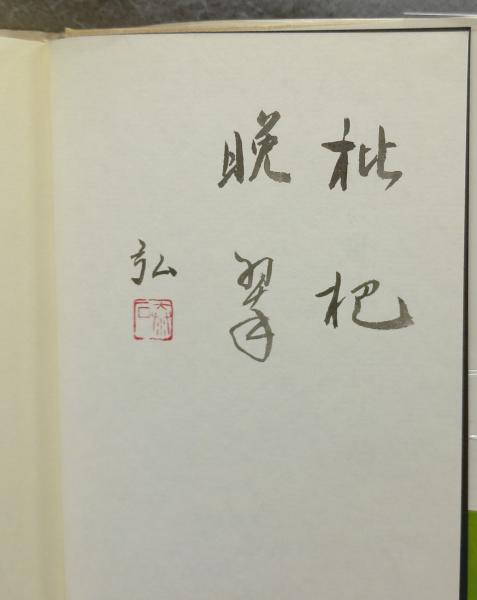 枇杷
晩翠
弘